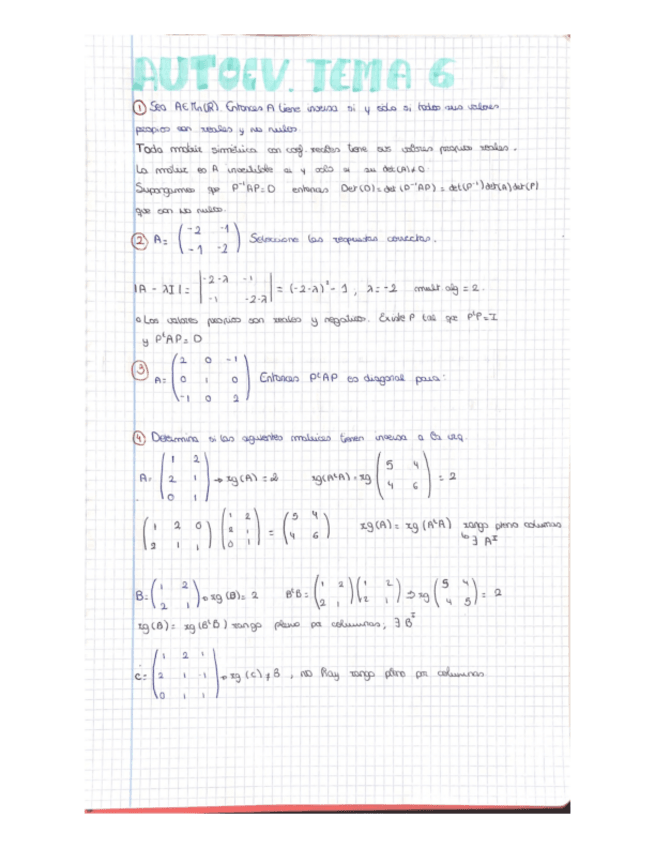 AUTOEV. TEMA 6
① Sea A∈Mn(R). Entonces A tiene inversa si y sólo si todos sus valores
propios son reales y no nulos
Toda matriz simétrica con coef. reales tiene sus valores propios reales.
La matriz es A invertible si y solo si su det(A)≠0.
Supongamos que P⁻¹AP=D entonces Det(D)=det(P⁻¹AP)=det(P⁻¹)det(A)det(P)
que son no nulos.
② A= (-2 -1
-1 -2) Seleccione las respuestas correctas.
|A - λI| = |-2-λ -1
-1 -2-λ| = (-2-λ)²-1, λ=-2 mult alg = 2.
Los valores propios son reales y negativos. Existe P tal que PᵗP=I
y PᵗAP=D
③ A= (2 0 -1
0 1 0
-1 0 2) Entonces PᵗAP es diagonal para:
④ Determina si las siguientes matrices tienen inversa a la izq.
A= (1 2
2 1
0 1) → rg(A)=2 rg(AᵗA)=rg (5 4
4 6) = 2
(1 2 0
2 1 1) (1 2
2 1
0 1) = (5 4
4 6) rg(A)=rg(AᵗA) rango pleno columnas
↳ ∃ Aᴵ
B= (1 2
2 1) → rg(B)=2 BᵗB= (1 2
2 1) (1 2
2 1) ⇒ rg (5 4
4 5) = 2
rg(B)=rg(BᵗB) rango pleno por columnas, ∃ Bᴵ
C= (1 2 1
2 1 -1
0 1 1) → rg(C)≠3, no hay rango pleno por columnas